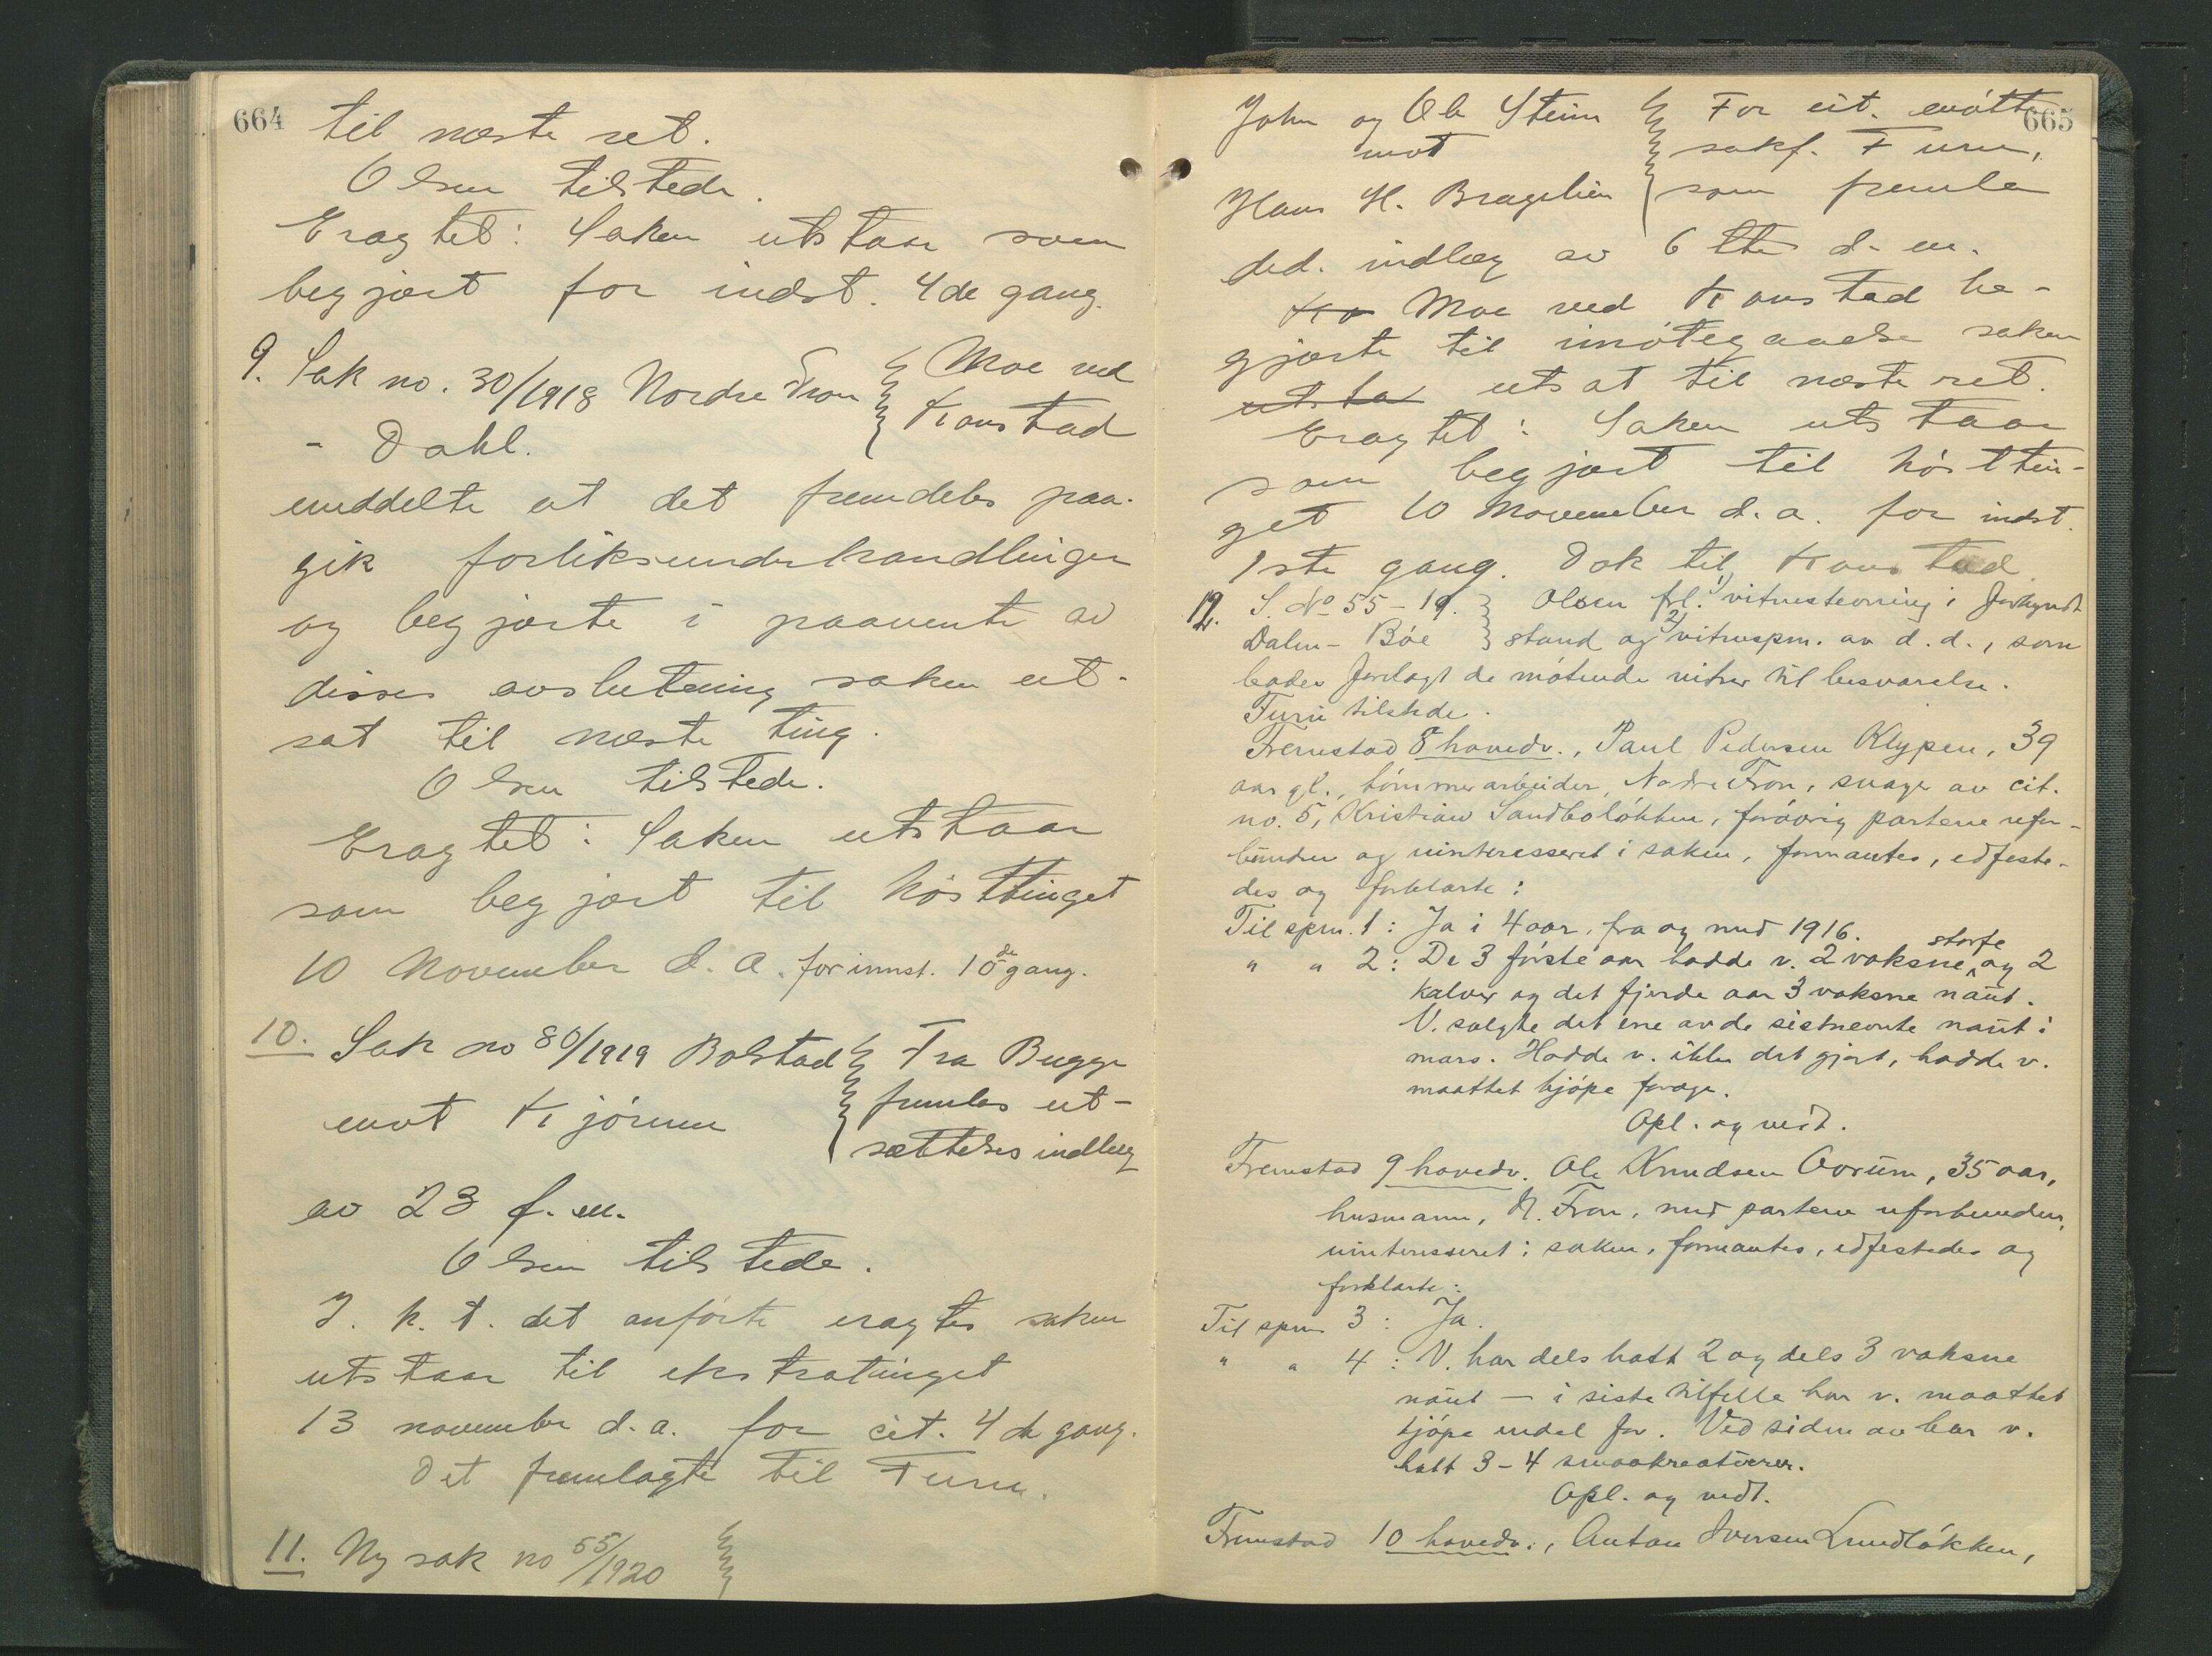 664
til næste ret.
Olsen tilstede.
Eragtet: Saken utstaar som
begjært for indst. 4de gang.
9. Sak no. 30/1918 Nordre Fron } Moe ved
- Dahl. } Konstad
meddelte at det fremdeles paa-
gik forliksunderhandlinger
og begjærte i paavente av
disses avslutning saken ut-
sat til næste ting.
Olsen tilstede.
Eragtet: Saken utstaar
som begjært til høsttinget
10 November d. a. for innst. 10de gang.
10. Sak no 80/1919 Bolstad } Fra Bugge
mot Kjørum } fremles ut-
sættelses indlæg
av 23 f. m.
Olsen tilstede.
I. h. t. det anførte eragtes saken
utstaar til ekstratinget
13 november d. a. for cit. 4de gang.
Det fremlagte til Furu.
11. Ny sak no 55/1920
665
John og Ole Steine } For cit. møtte
mot } sakf. Furu,
Hans H. Bragelien } som fremla
ded. indlæg av 6 tte d. m.
Ko Moe ved Konstad be-
gjærte til imøtegaaelse saken
utsta utsat til næste ret.
Eragtet: Saken utstaar
som begjært til høsttin-
get 10 November d. a. for indst.
1ste gang. Dok til Konstad.
12. S. No 55 - 19. } Olsen frl. 1) vitnestevning i forkyndt
Dalen - Bøe } stand og 2) vitnespm. av d. d., som
bades forelagt de møtende vitner til besvarelse.
Furu tilstede.
Fremstod 8 hovedv., Paul Pedersen Klypen, 39
aar gl., tømmerarbeider, Nordre Fron, svoger av cit.
no. 5, Kristian Sandboløkken, forøvrig partene ufor-
bunden og uinteresseret i saken, formantes, edfeste-
des og forklarte:
Til spm. 1: Ja i 4 aar, fra og med 1916.
" " 2: De 3 første aar hadde v. 2 voksne storfe og 2
kalver og det fjerde aar 3 voksne naut.
V. solgte det ene av de sistnevnte naut i
mars. Hadde v. ikke det gjort, hadde v.
maattet kjøpe forage.
Opl. og vedt.
Fremstod 9 hovedv. Ole Knudsen Aorum, 35 aar,
husmann, N. Fron, med partene uforbunden,
uinteresseret i saken, formantes, edfestedes og
forklarte:
Til spm 3: Ja.
" " 4: V. har dels hatt 2 og dels 3 voksne
naut — i siste tilfelle har v. maattet
kjøpe endel for. Ved siden av har v.
hatt 3 - 4 smaakreaturer.
Opl. og vedt.
Fremstod 10 hovedv., Anton Iversen Lundløkken,